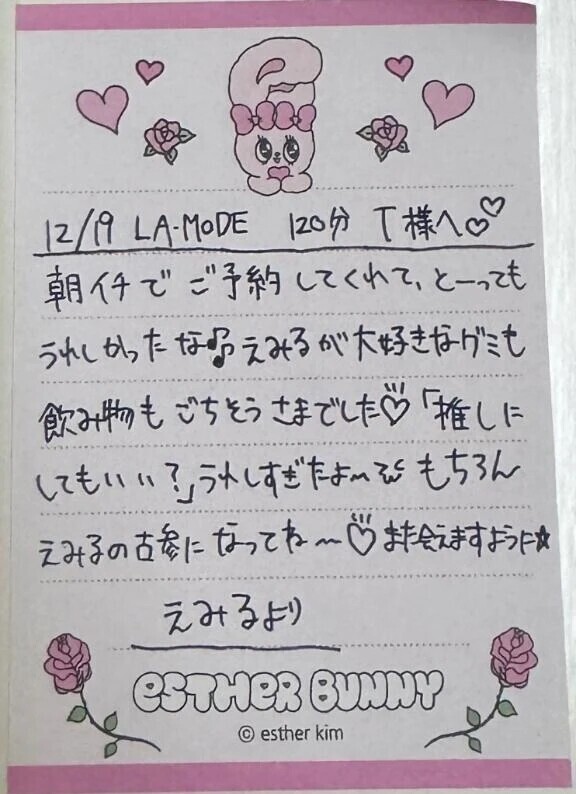 12/19 LA・MODE 120分 T様へ♡♡
朝イチで ご予約してくれて、とーっても
うれしかったな♪ えみるが大好きなグミも
飲み物も ごちそうさまでした♡「推しに
してもいい？」うれしすぎたよ〜 もちろん
えみるの古参になってね〜♡ また会えますように☆
えみるより
ESTHER BUNNY
© esther kim